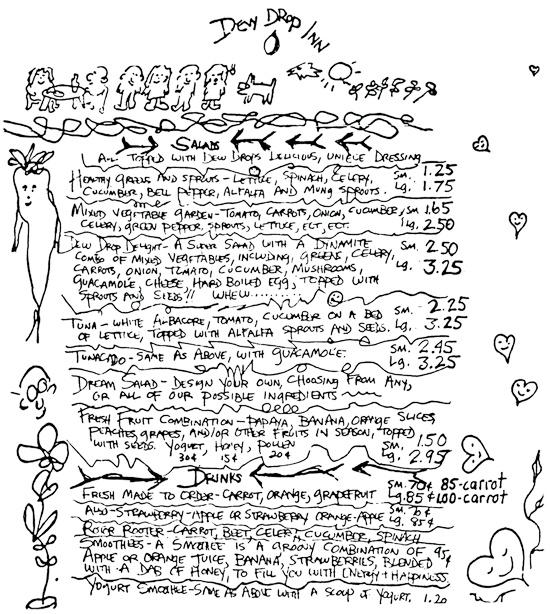 DEW DROP INN
SALADS
ALL TOPPED WITH DEW DROPS DELICIOUS, UNIQUE DRESSING
HEALTHY GREENS AND SPROUTS - LETTUCE, SPINACH, CELERY, SM. 1.25
CUCUMBER, BELL PEPPER, ALFALFA AND MUNG SPROUTS. Lg. 1.75
MIXED VEGETABLE GARDEN - TOMATO, CARROTS, ONION, CUCUMBER, SM 1.65
CELERY, GREEN PEPPER, SPROUTS, LETTUCE, ECT, ECT. Lg. 2.50
DEW DROP DELIGHT - A SUPER SALAD WITH A DYNAMITE SM. 2.50
COMBO OF MIXED VEGETABLES, INCLUDING, GREENS, CELERY, Lg. 3.25
CARROTS, ONION, TOMATO, CUCUMBER, MUSHROOMS,
GUACAMOLE, CHEESE, HARD BOILED EGG, TOPPED WITH
SPROUTS AND SEEDS!! WHEW..........
TUNA - WHITE ALBACORE, TOMATO, CUCUMBER ON A BED SM. 2.25
OF LETTUCE, TOPPED WITH ALFALFA SPROUTS AND SEEDS. Lg. 3.25
TUNACADO - SAME AS ABOVE, WITH GUACAMOLE. SM. 2.45
Lg. 3.25
DREAM SALAD - DESIGN YOUR OWN, CHOOSING FROM ANY,
OR ALL OF OUR POSSIBLE INGREDIENTS
FRESH FRUIT COMBINATION - PAPAYA, BANANA, ORANGE SLICES,
PEACHES, GRAPES, AND/OR OTHER FRUITS IN SEASON, TOPPED
WITH SEEDS. YOGURT, HONEY, POLLEN SM. 1.50
30¢ 15¢ 20¢ Lg. 2.95
DRINKS
FRESH MADE TO ORDER - CARROT, ORANGE, GRAPEFRUIT SM. 70¢ 85-carrot
Lg. 85¢ 1.00-carrot
ALSO - STRAWBERRY-APPLE OR STRAWBERRY ORANGE-APPLE SM. 70¢
Lg. 85¢
ROTOR ROOTER - CARROT, BEET, CELERY, CUCUMBER, SPINACH
SMOOTHIES - A SMOOTHIE IS A GROOVY COMBINATION OF 95¢
APPLE OR ORANGE JUICE, BANANA, STRAWBERRIES, BLENDED
WITH A DAB OF HONEY, TO FILL YOU WITH ENERGY + HAPPINESS
YOGURT SMOOTHIE - SAME AS ABOVE WITH A SCOOP OF YOGURT. 1.20